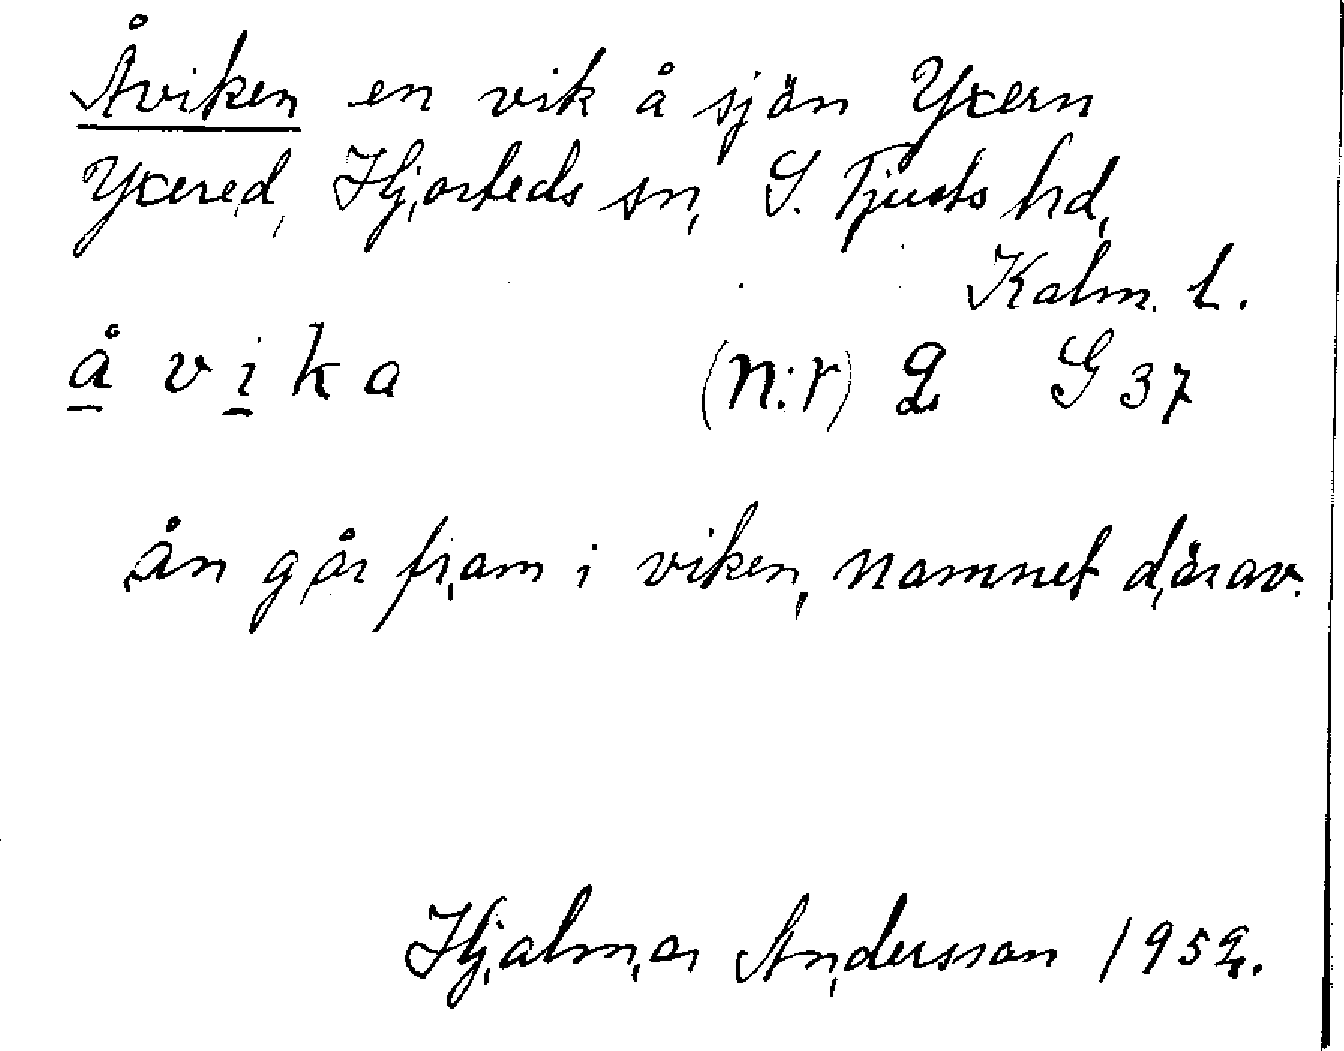 Åviken en vik å sjön Yxern
Yxered, Hjorteds sn, S. Tjusts hd,
Kalm. l.
å v i k a (n:r) 2 G 37
ån går fram i viken, namnet därav.
Hjalmar Andersson 1952.